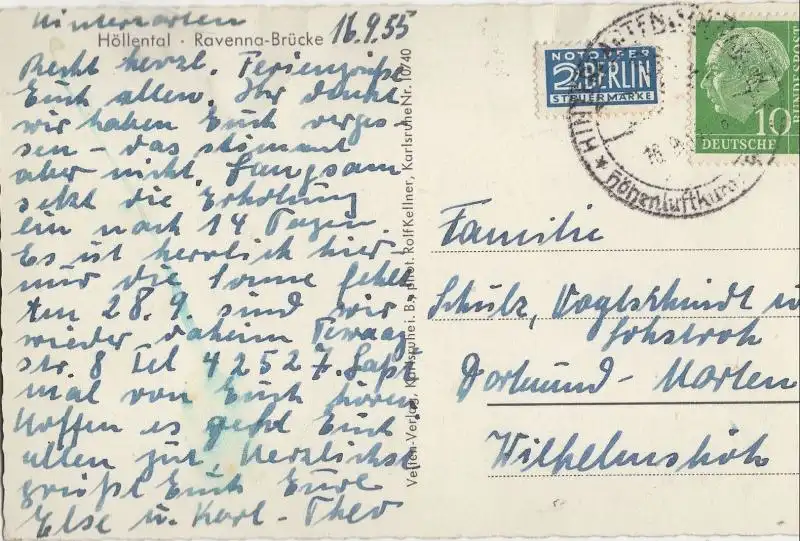 Hinterzarten
16.9.55
Höllental · Ravenna-Brücke
Recht herzl. Feriengrüße
Euch allen. Ihr denkt
wir haben Euch verges-
sen - das stimmt
aber nicht. Langsam
setzt die Erholung
ein nach 14 Tagen.
Es ist herrlich hier -
nur die Sonne fehlt
Am 28.9. sind wir
wieder daheim
str. 8 Tel 42527. Laßt
mal von Euch hören
Hoffen es geht Euch
allen gut, Herzlichst
grüßt Euch Eure
Else u. Karl-Theo
Karlsruhe i. B., phot. Rolf Kellner, Karlsruhe Nr. 10/40
NOTOPFER
2 BERLIN
STEUERMARKE
10
DEUTSCHE
BUNDESPOST
Höhenluftkur
Familie
Schulz, Vogtschmidt u
Lohstroh
Dortmund-Marten
Wilhelmshöh